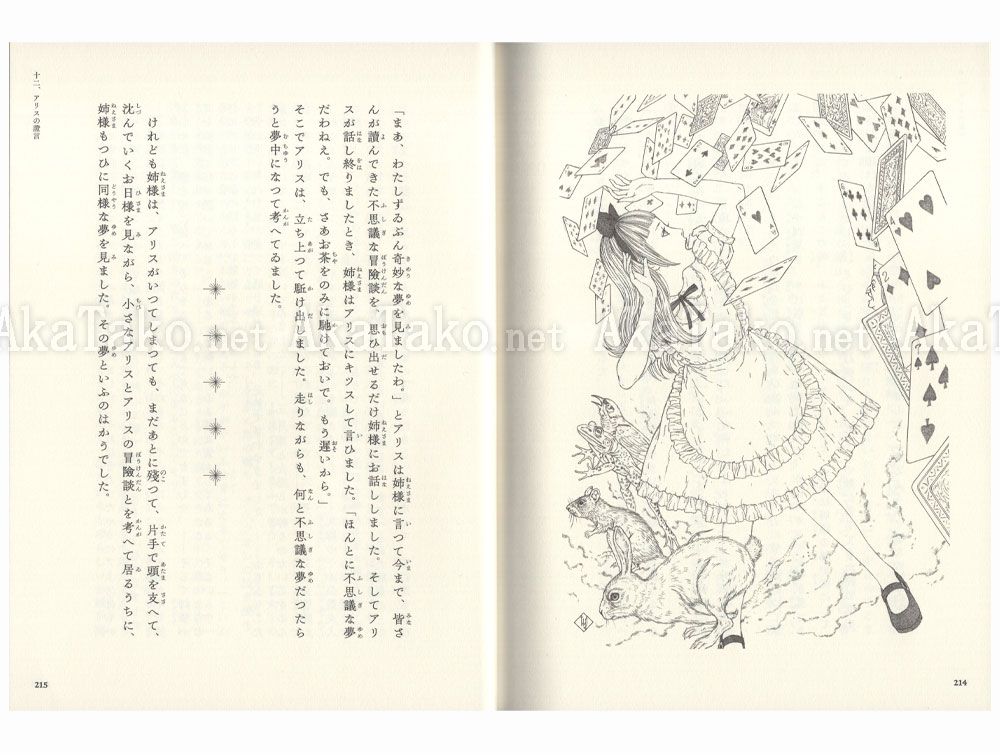 214
「まあ、わたしずゐぶん奇妙な夢を見ましたわ。」とアリスは姉様に言つて今まで、皆さ
んが讀んできた不思議な冒險談を、思ひ出せるだけ姉様にお話ししました。そしてアリ
スが話し終りましたとき、姉様はアリスにキツスして言ひました。「ほんとに不思議な夢
だわねえ。でも、さあお茶をのみに馳けておいで。もう遲いから。」
そこでアリスは、立ち上つて駈け出しました。走りながらも、何と不思議な夢だつたら
うと夢中になつて考へてゐました。
けれども姉様は、アリスがいつてしまつても、まだあとに殘つて、片手で頭を支へて、
沈んでいくお日様を見ながら、小さなアリスとアリスの冒險談とを考へて居るうちに、
姉様もつひに同様な夢を見ました。その夢といふのはかうでした。
十二、アリスの證言
215
AkaTako.net
AkaTako.net